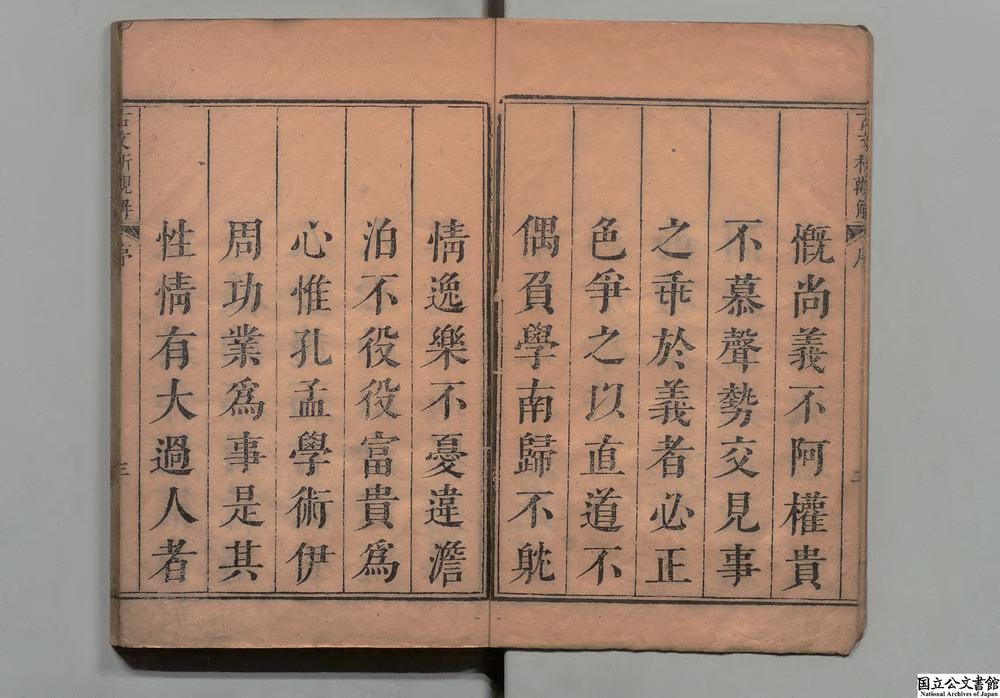 古文析觀解 序
慨尚義不阿權貴
不慕聲勢交見事
之乖於義者必正
色爭之以直道不
偶負學南歸不躭
情逸樂不憂違澹
泊不役役富貴爲
心惟孔孟學術伊
周功業爲事是其
性情有大過人者
古文析觀解 序 三
国立公文書館
National Archives of Japan